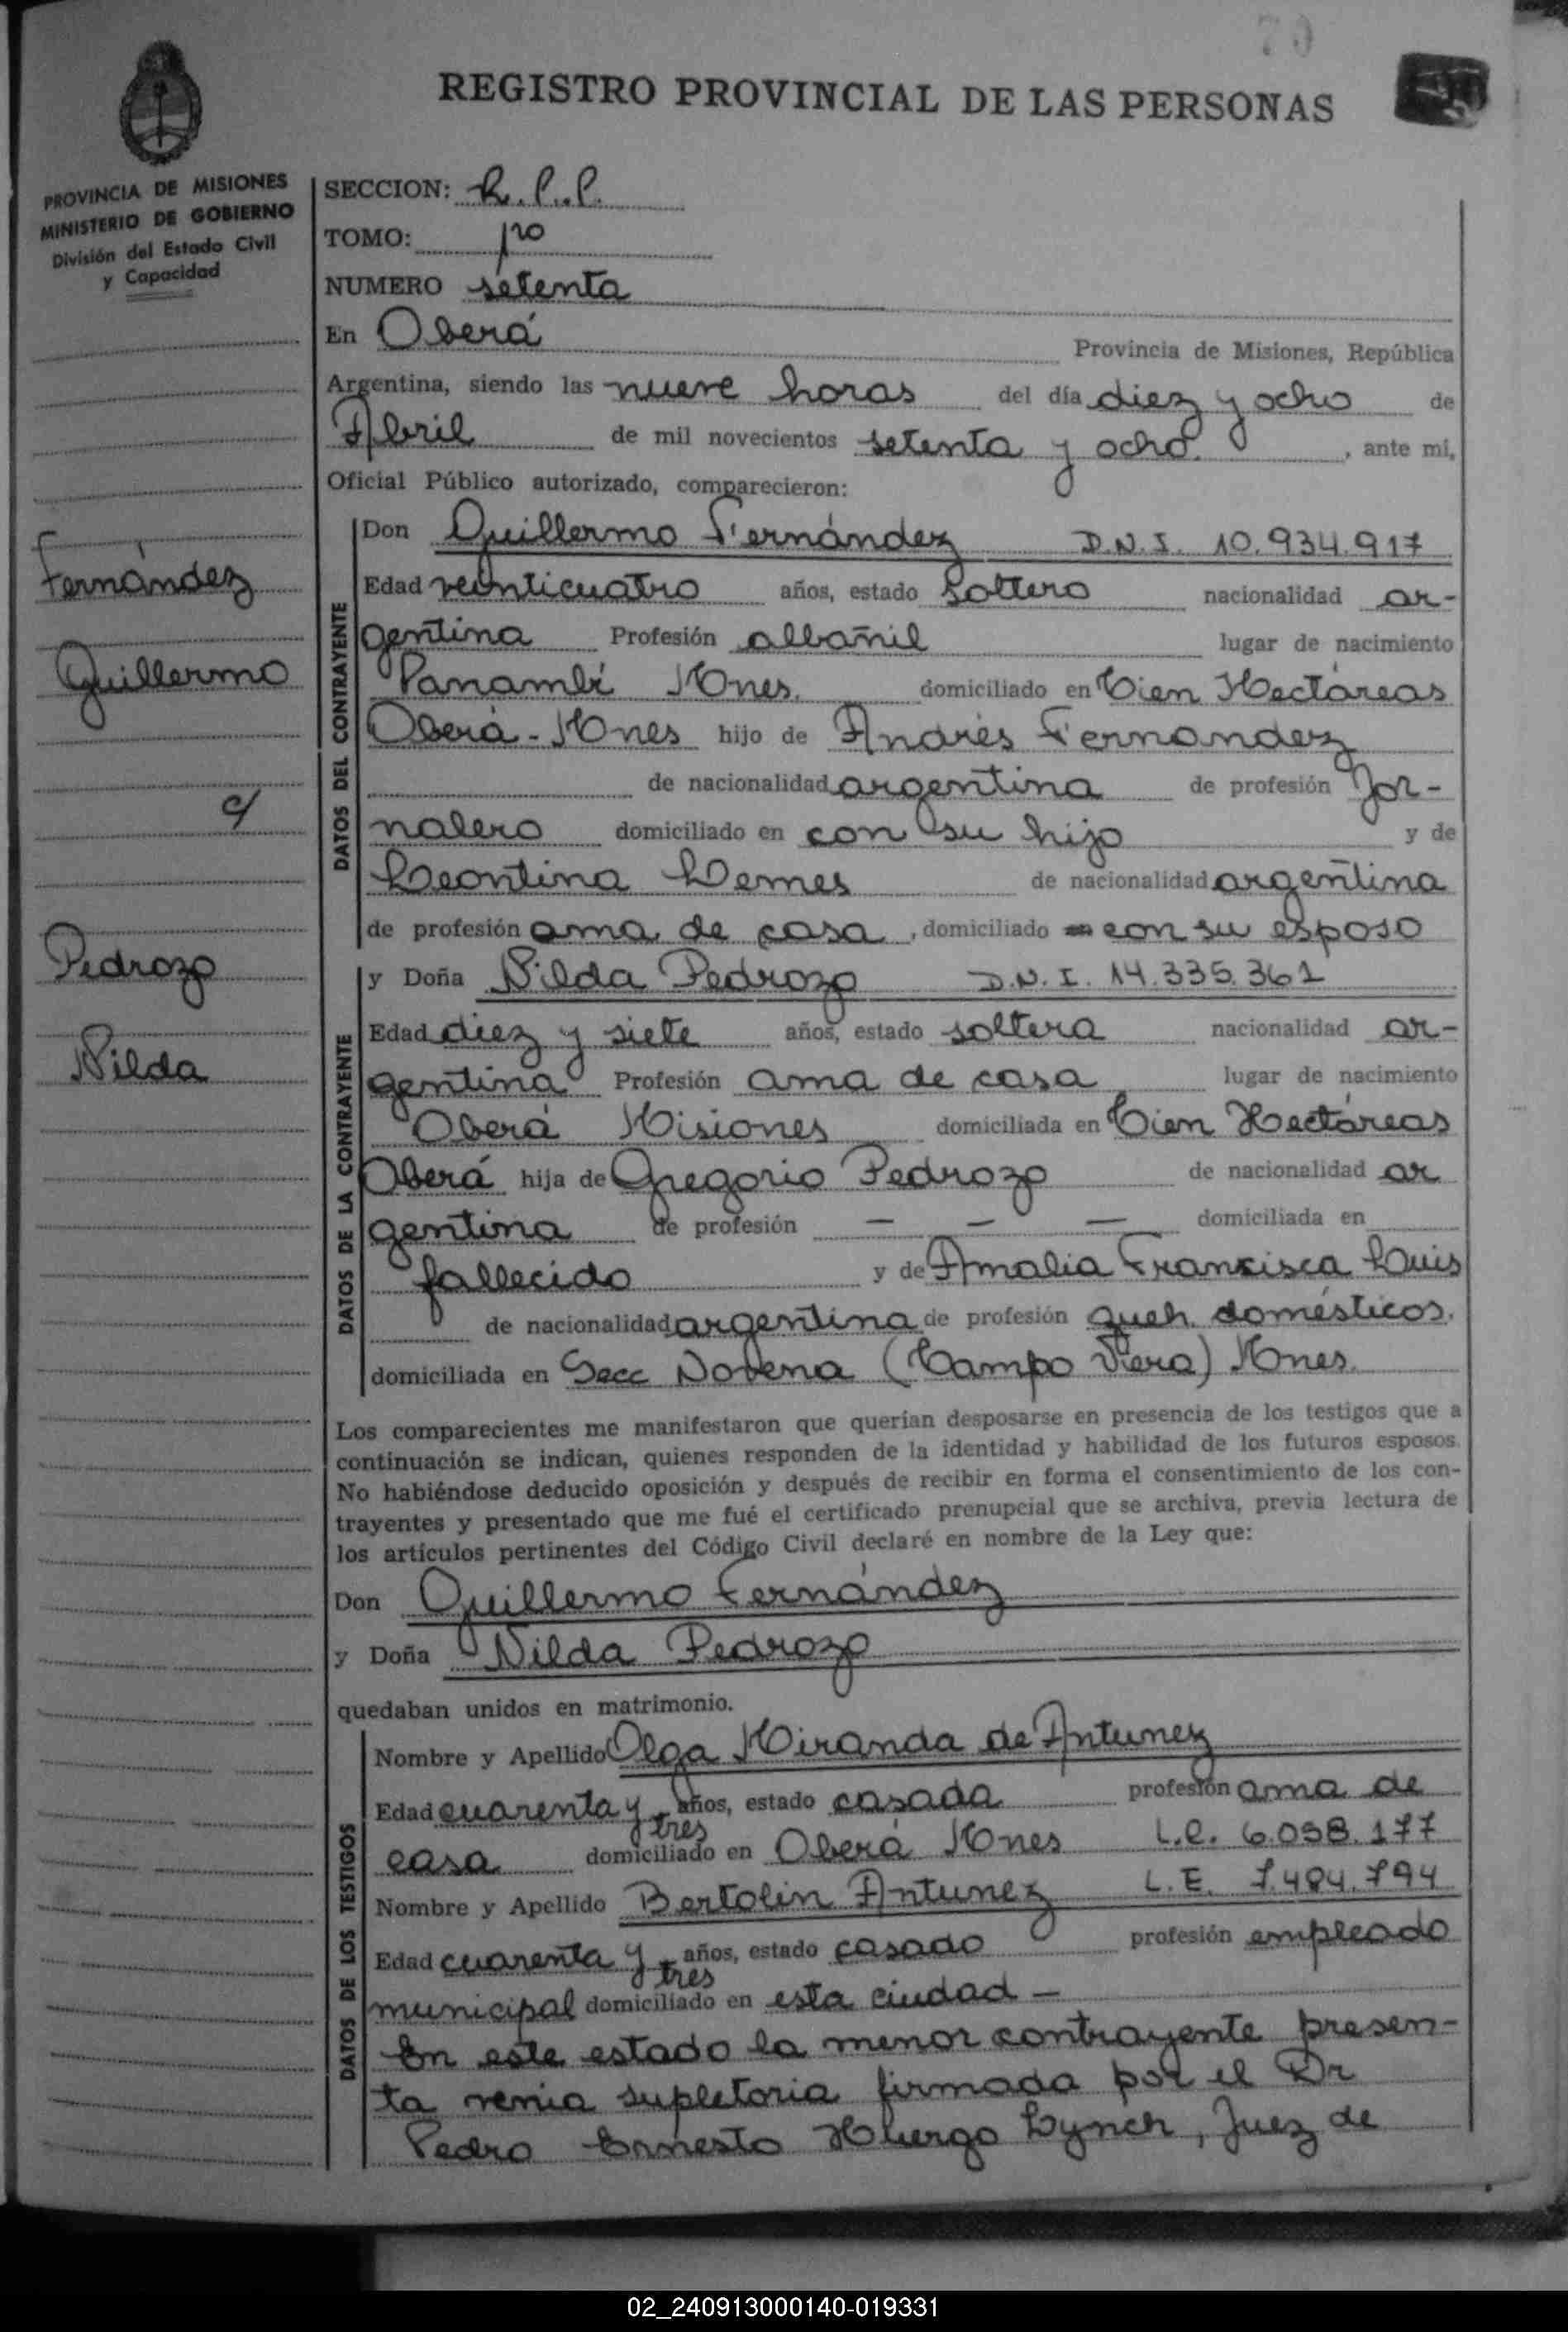 70
REGISTRO PROVINCIAL DE LAS PERSONAS
PROVINCIA DE MISIONES
MINISTERIO DE GOBIERNO
División del Estado Civil
y Capacidad
Fernández
Guillermo
c/
Pedrozo
Nilda
SECCION: R.P.P.
TOMO: 1ro
NUMERO setenta
En Oberá Provincia de Misiones, República
Argentina, siendo las nueve horas del día diez y ocho de
Abril de mil novecientos setenta y ocho. , ante mi,
Oficial Público autorizado, comparecieron:
DATOS DEL CONTRAYENTE
Don Guillermo Fernández D.N.I. 10.934.917
Edad veinticuatro años, estado Soltero nacionalidad ar-
gentina Profesión albañil lugar de nacimiento
Panambí Mnes. domiciliado en Cien Hectáreas
Oberá - Mnes hijo de Andrés Fernandez
de nacionalidad argentina de profesión Jor-
nalero domiciliado en con su hijo y de
Leontina Lemes de nacionalidad argentina
de profesión ama de casa , domiciliado con su esposo
DATOS DE LA CONTRAYENTE
y Doña Nilda Pedrozo D.N.I. 14.335.361
Edad diez y siete años, estado soltera nacionalidad ar-
gentina Profesión ama de casa lugar de nacimiento
Oberá Misiones domiciliada en Cien Hectáreas
Oberá hija de Gregorio Pedrozo de nacionalidad ar
gentina de profesión — — — domiciliada en
fallecido y de Amalia Francisca Luis
de nacionalidad argentina de profesión queh. domésticos.
domiciliada en Secc Novena (Campo Viera) Mnes.
Los comparecientes me manifestaron que querían desposarse en presencia de los testigos que a
continuación se indican, quienes responden de la identidad y habilidad de los futuros esposos.
No habiéndose deducido oposición y después de recibir en forma el consentimiento de los con-
trayentes y presentado que me fué el certificado prenupcial que se archiva, previa lectura de
los artículos pertinentes del Código Civil declaré en nombre de la Ley que:
Don Guillermo Fernández
y Doña Nilda Pedrozo
quedaban unidos en matrimonio.
DATOS DE LOS TESTIGOS
Nombre y Apellido Olga Miranda de Antunez
Edad cuarenta y tres años, estado casada profesión ama de
casa domiciliado en Oberá Mnes L.C. 6.058.177
Nombre y Apellido Bertolin Antunez L.E. 7.484.794
Edad cuarenta y tres años, estado casado profesión empleado
municipal domiciliado en esta ciudad —
En este estado la menor contrayente presen-
ta venia supletoria firmada por el Dr
Pedro Ernesto Huergo Lynch, Juez de
02_240913000140-019331